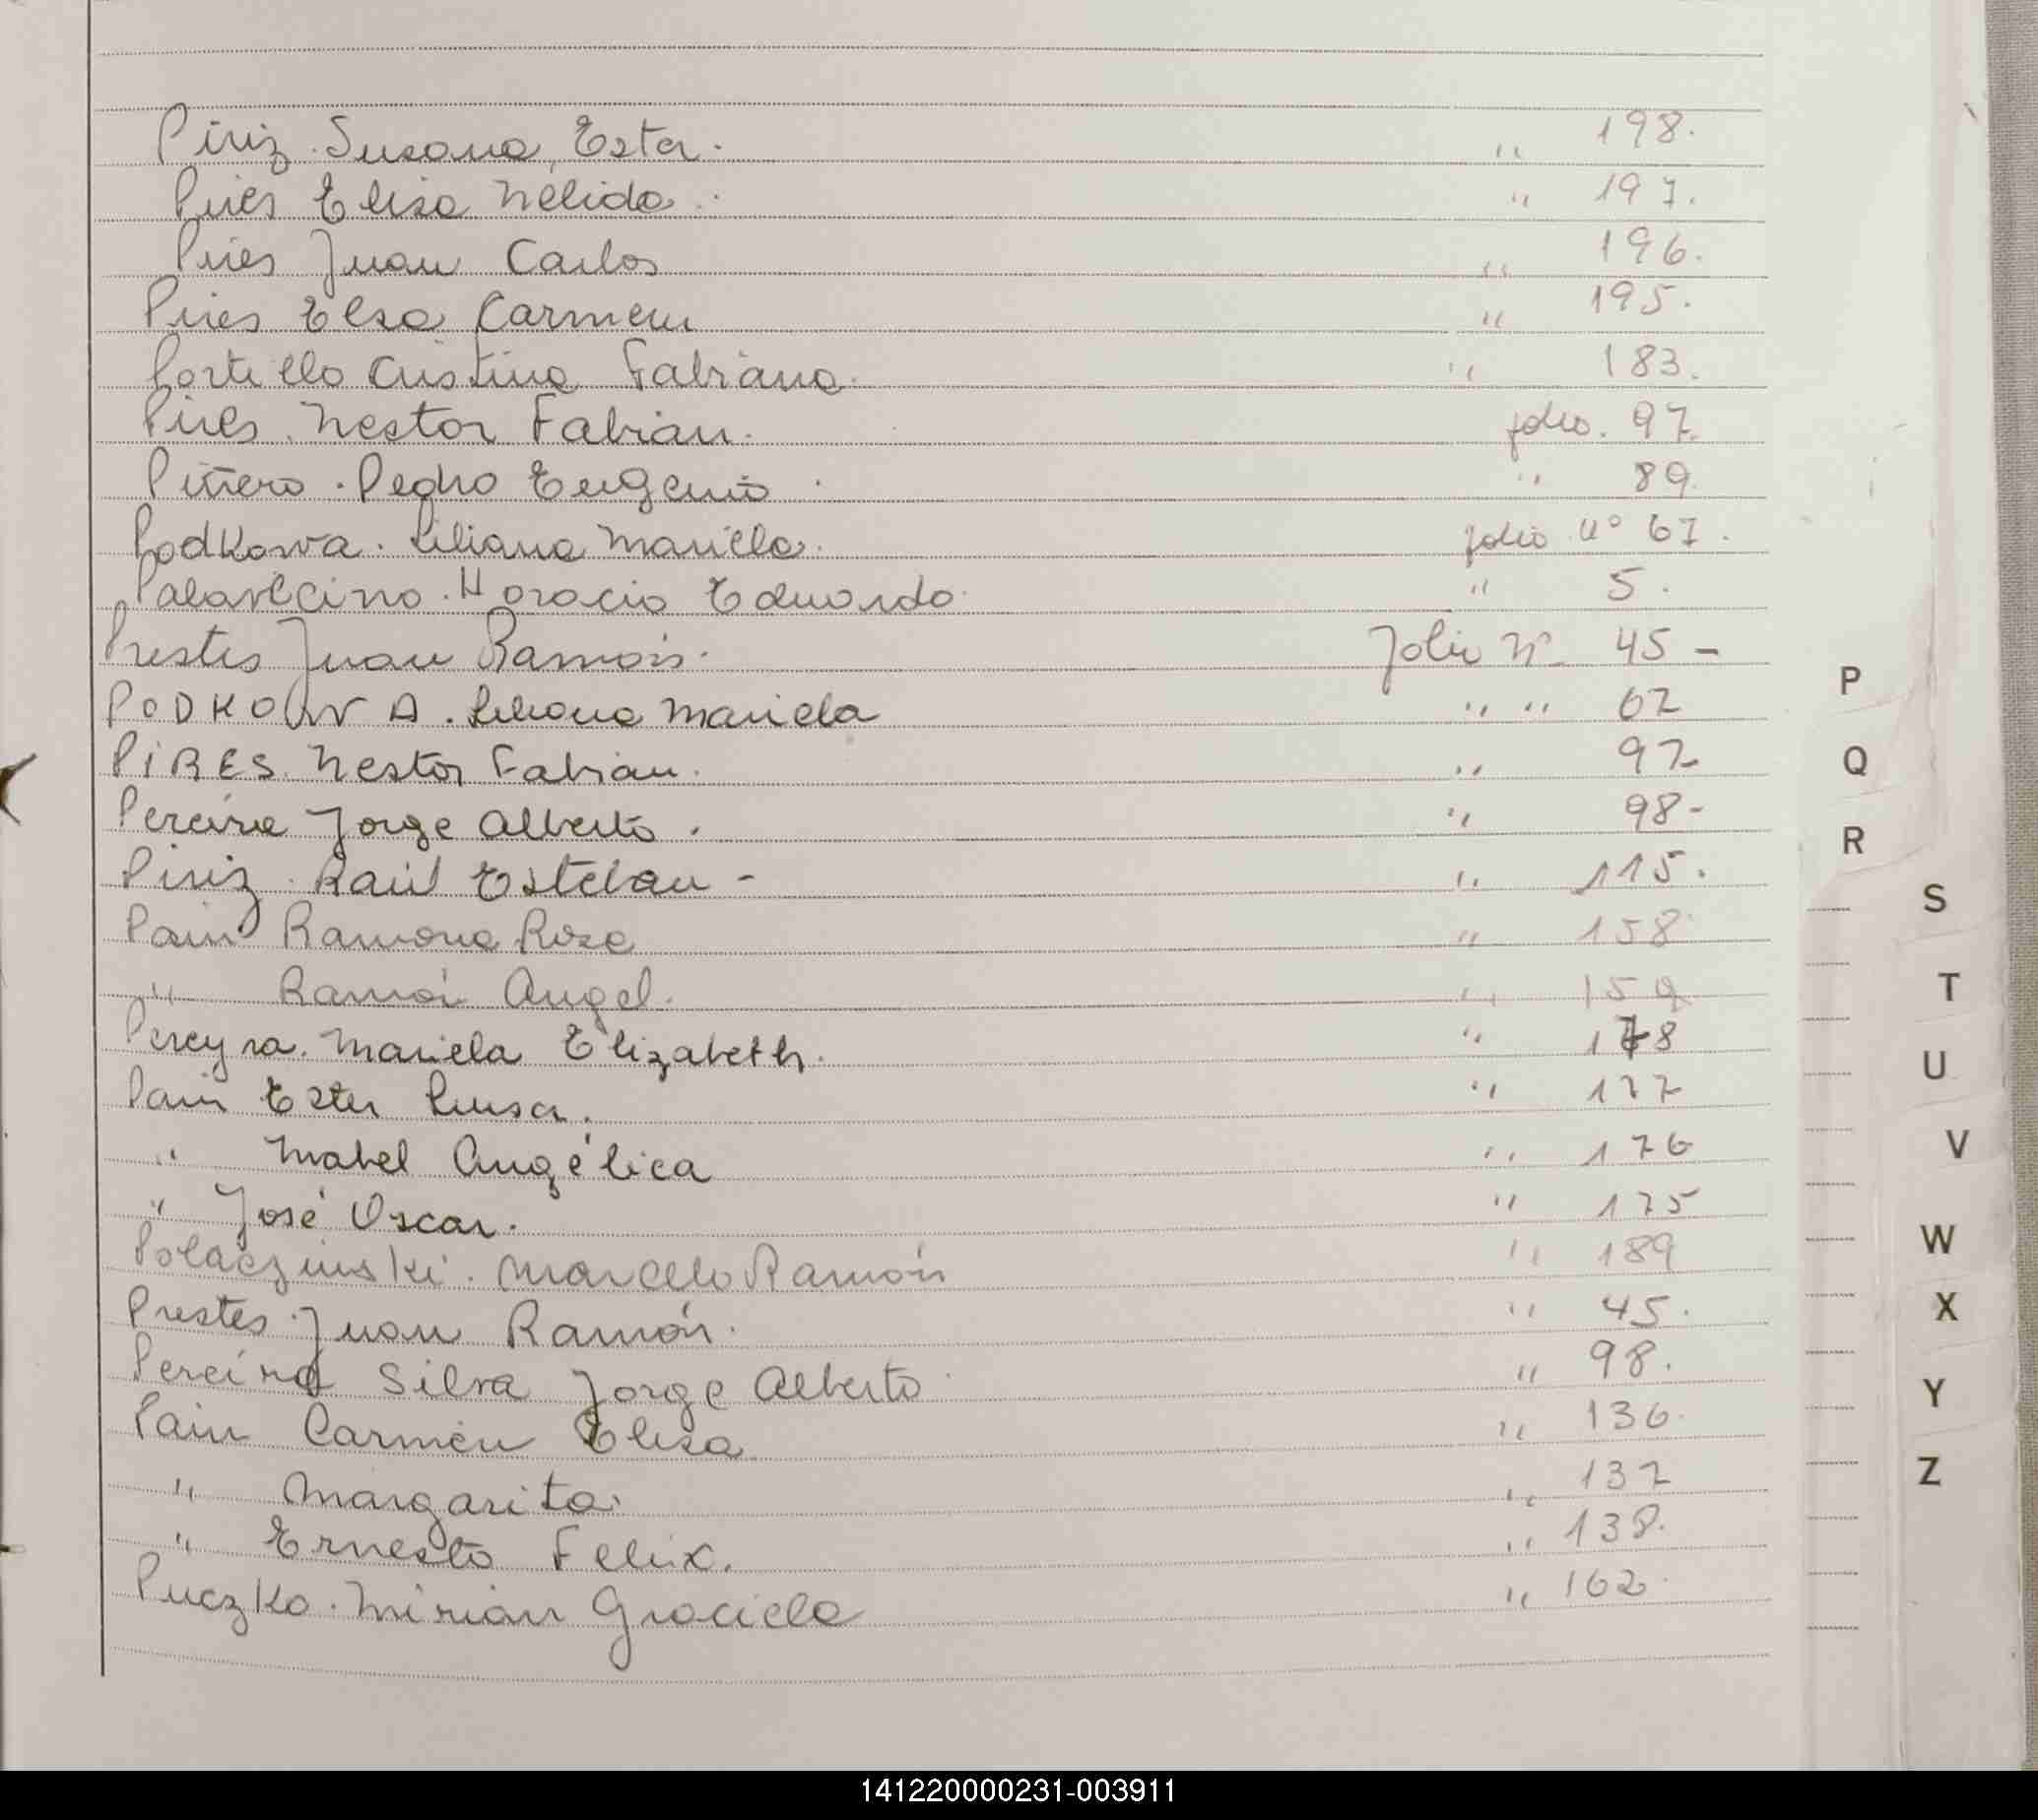 Piriz. Susana, Ester. " 198.
Pires Elisa Nélida. " 197.
Pires Juan Carlos " 196.
Pires Elsa Carmen " 195.
Portillo Cristina Fabiana. " 183.
Pires. Nestor Fabian. folio. 97.
Piñero. Pedro Eugenio. " 89.
Podkowa. Liliana Mariela. folio n° 67.
Palavecino. Horacio Eduardo. " 5.
Prestes Juan Ramón. Folio N° 45 -
PODKOWA. Liliana Mariela " " 67
PIRES. Nestor Fabian. " 97
Pereira Jorge Alberto. " 98-
Piriz. Raúl Esteban - " 115.
Pain Ramona Rosa " 158
" Ramón Angel. " 159
Pereyra. Mariela Elizabeth. " 178
Pain Ester Luisa. " 177
" Mabel Angélica " 176
" José Oscar. " 175
Polaczinski. Marcelo Ramón " 189
Prestes. Juan Ramón. " 45.
Pereira Silva Jorge Alberto " 98.
Pain Carmen Elisa " 136.
" Margarita. " 137
" Ernesto Felix. " 138.
Puczko. Mirian Graciela " 162.
P
Q
R
S
T
U
V
W
X
Y
Z
141220000231-003911